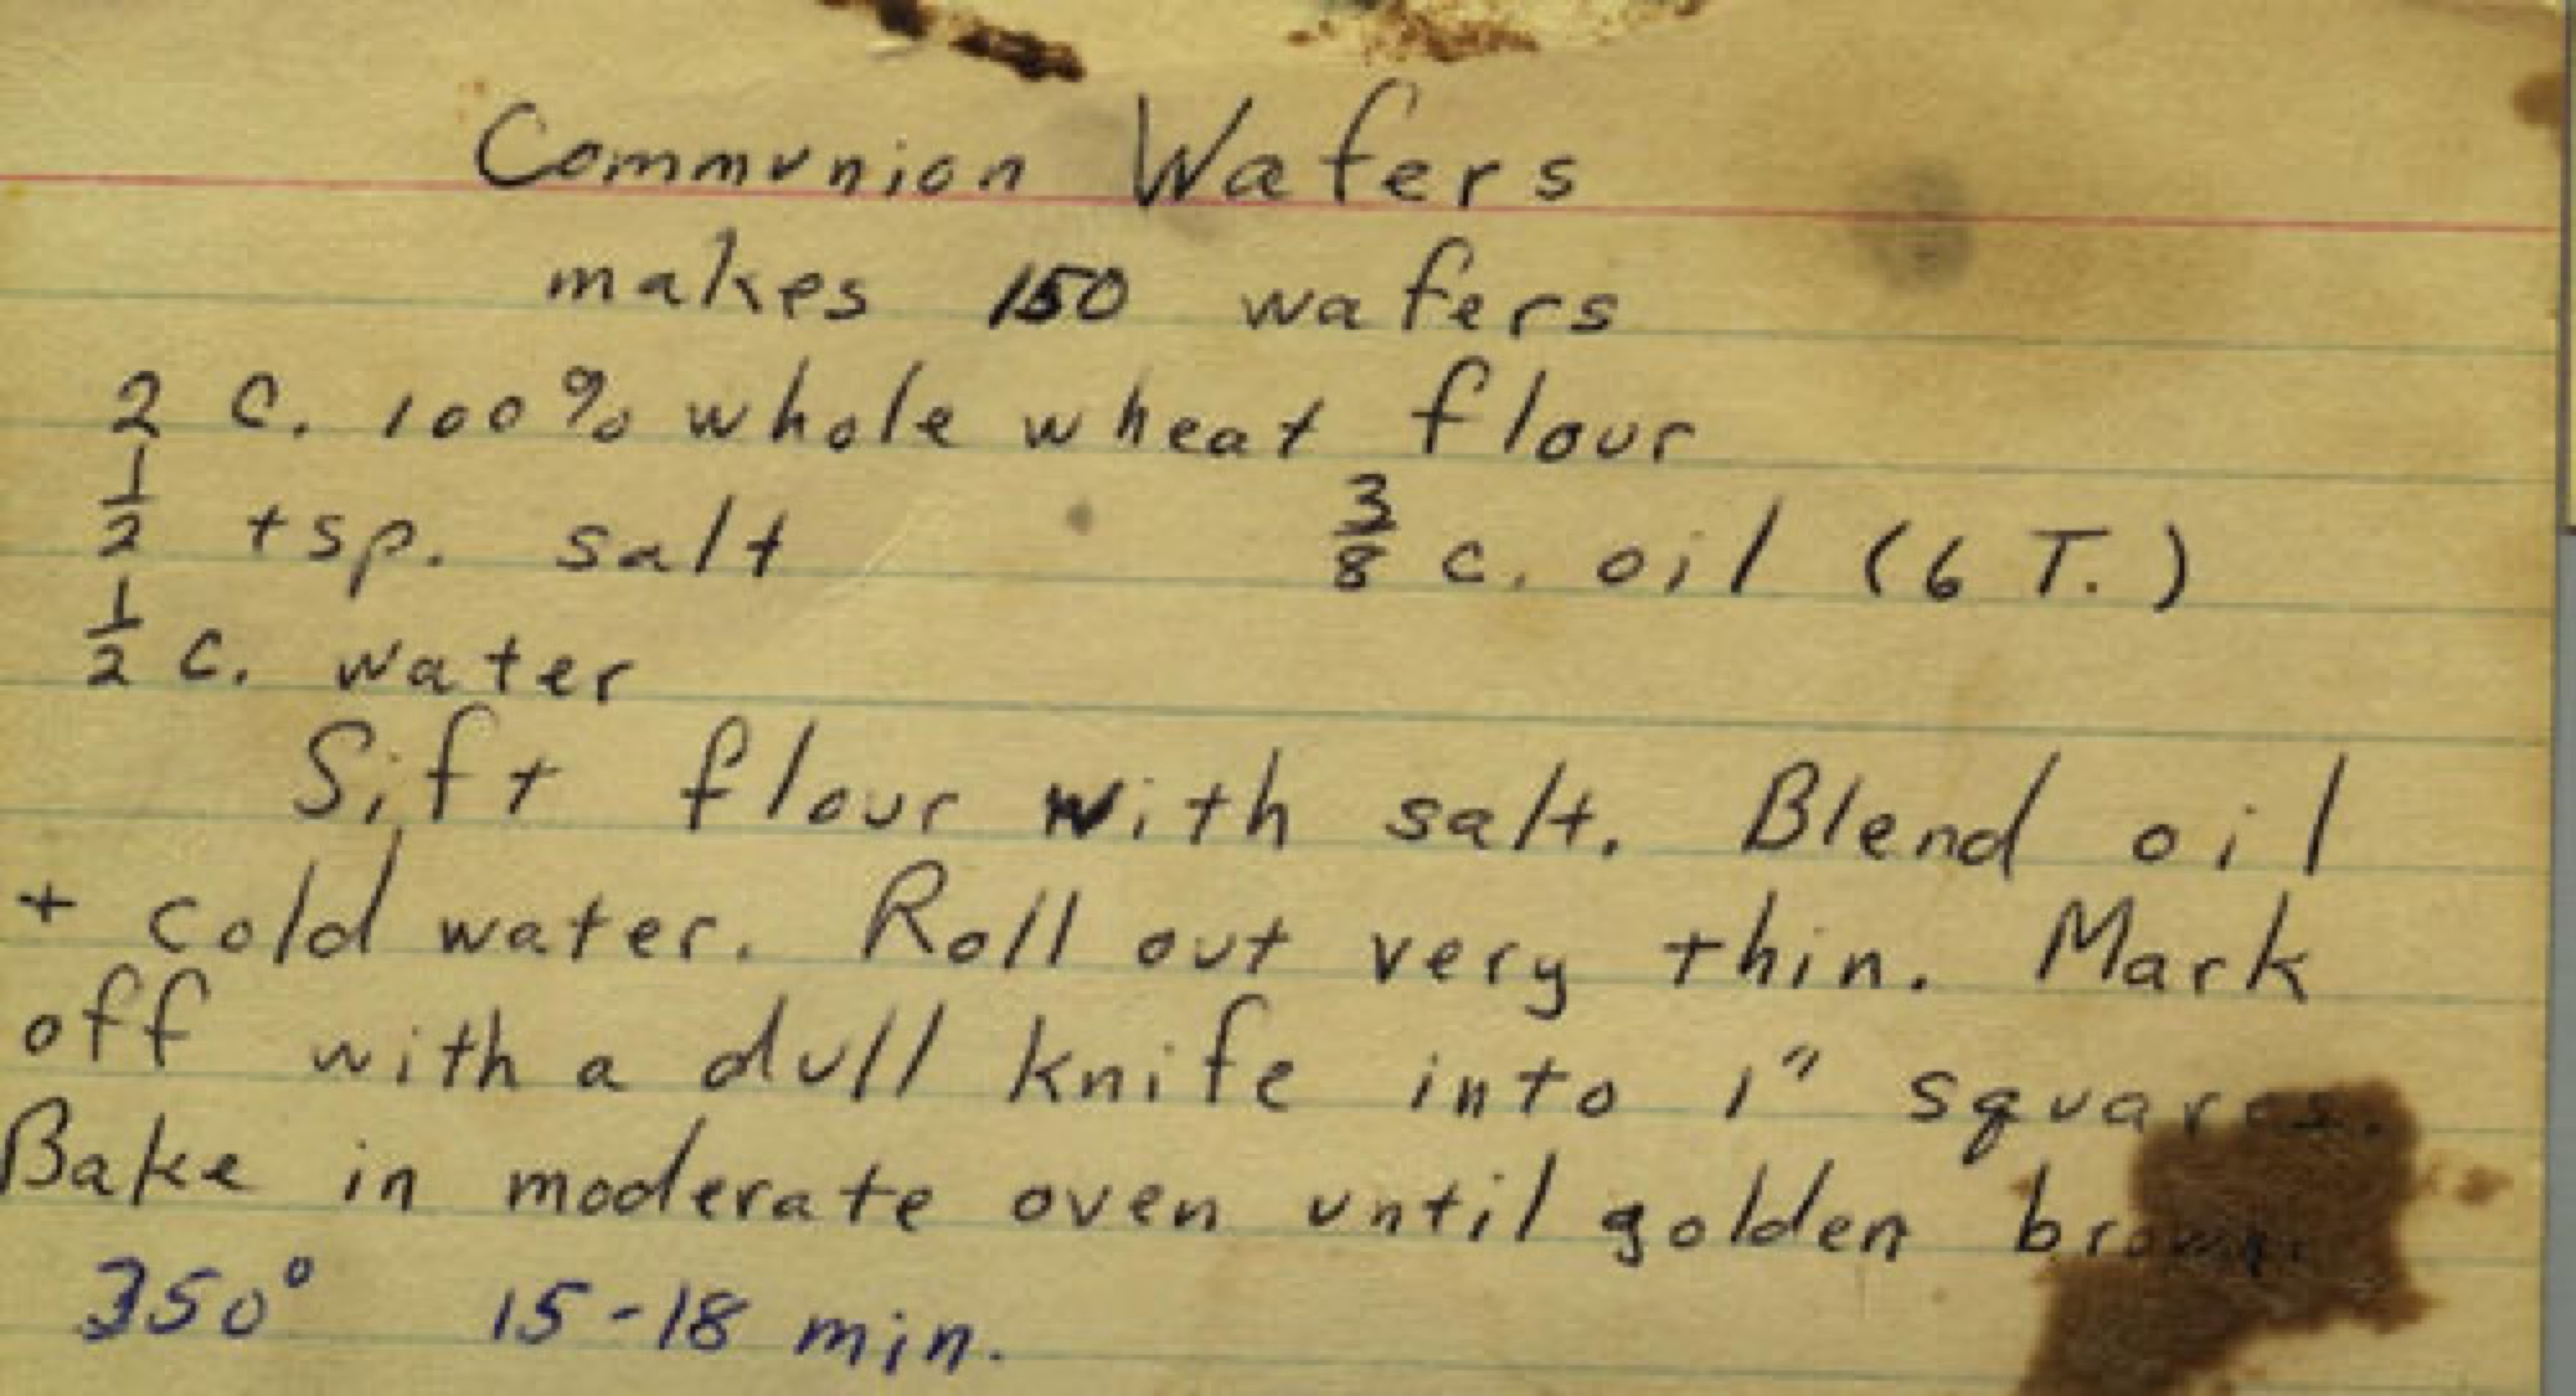 Communion Wafers
makes 150 wafers
2 C. 100% whole wheat flour
1/2 tsp. salt 3/8 c. oil (6 T.)
1/2 c. water
Sift flour with salt. Blend oil
+ cold water. Roll out very thin. Mark
off with a dull knife into 1" squares.
Bake in moderate oven until golden brown.
350° 15-18 min.